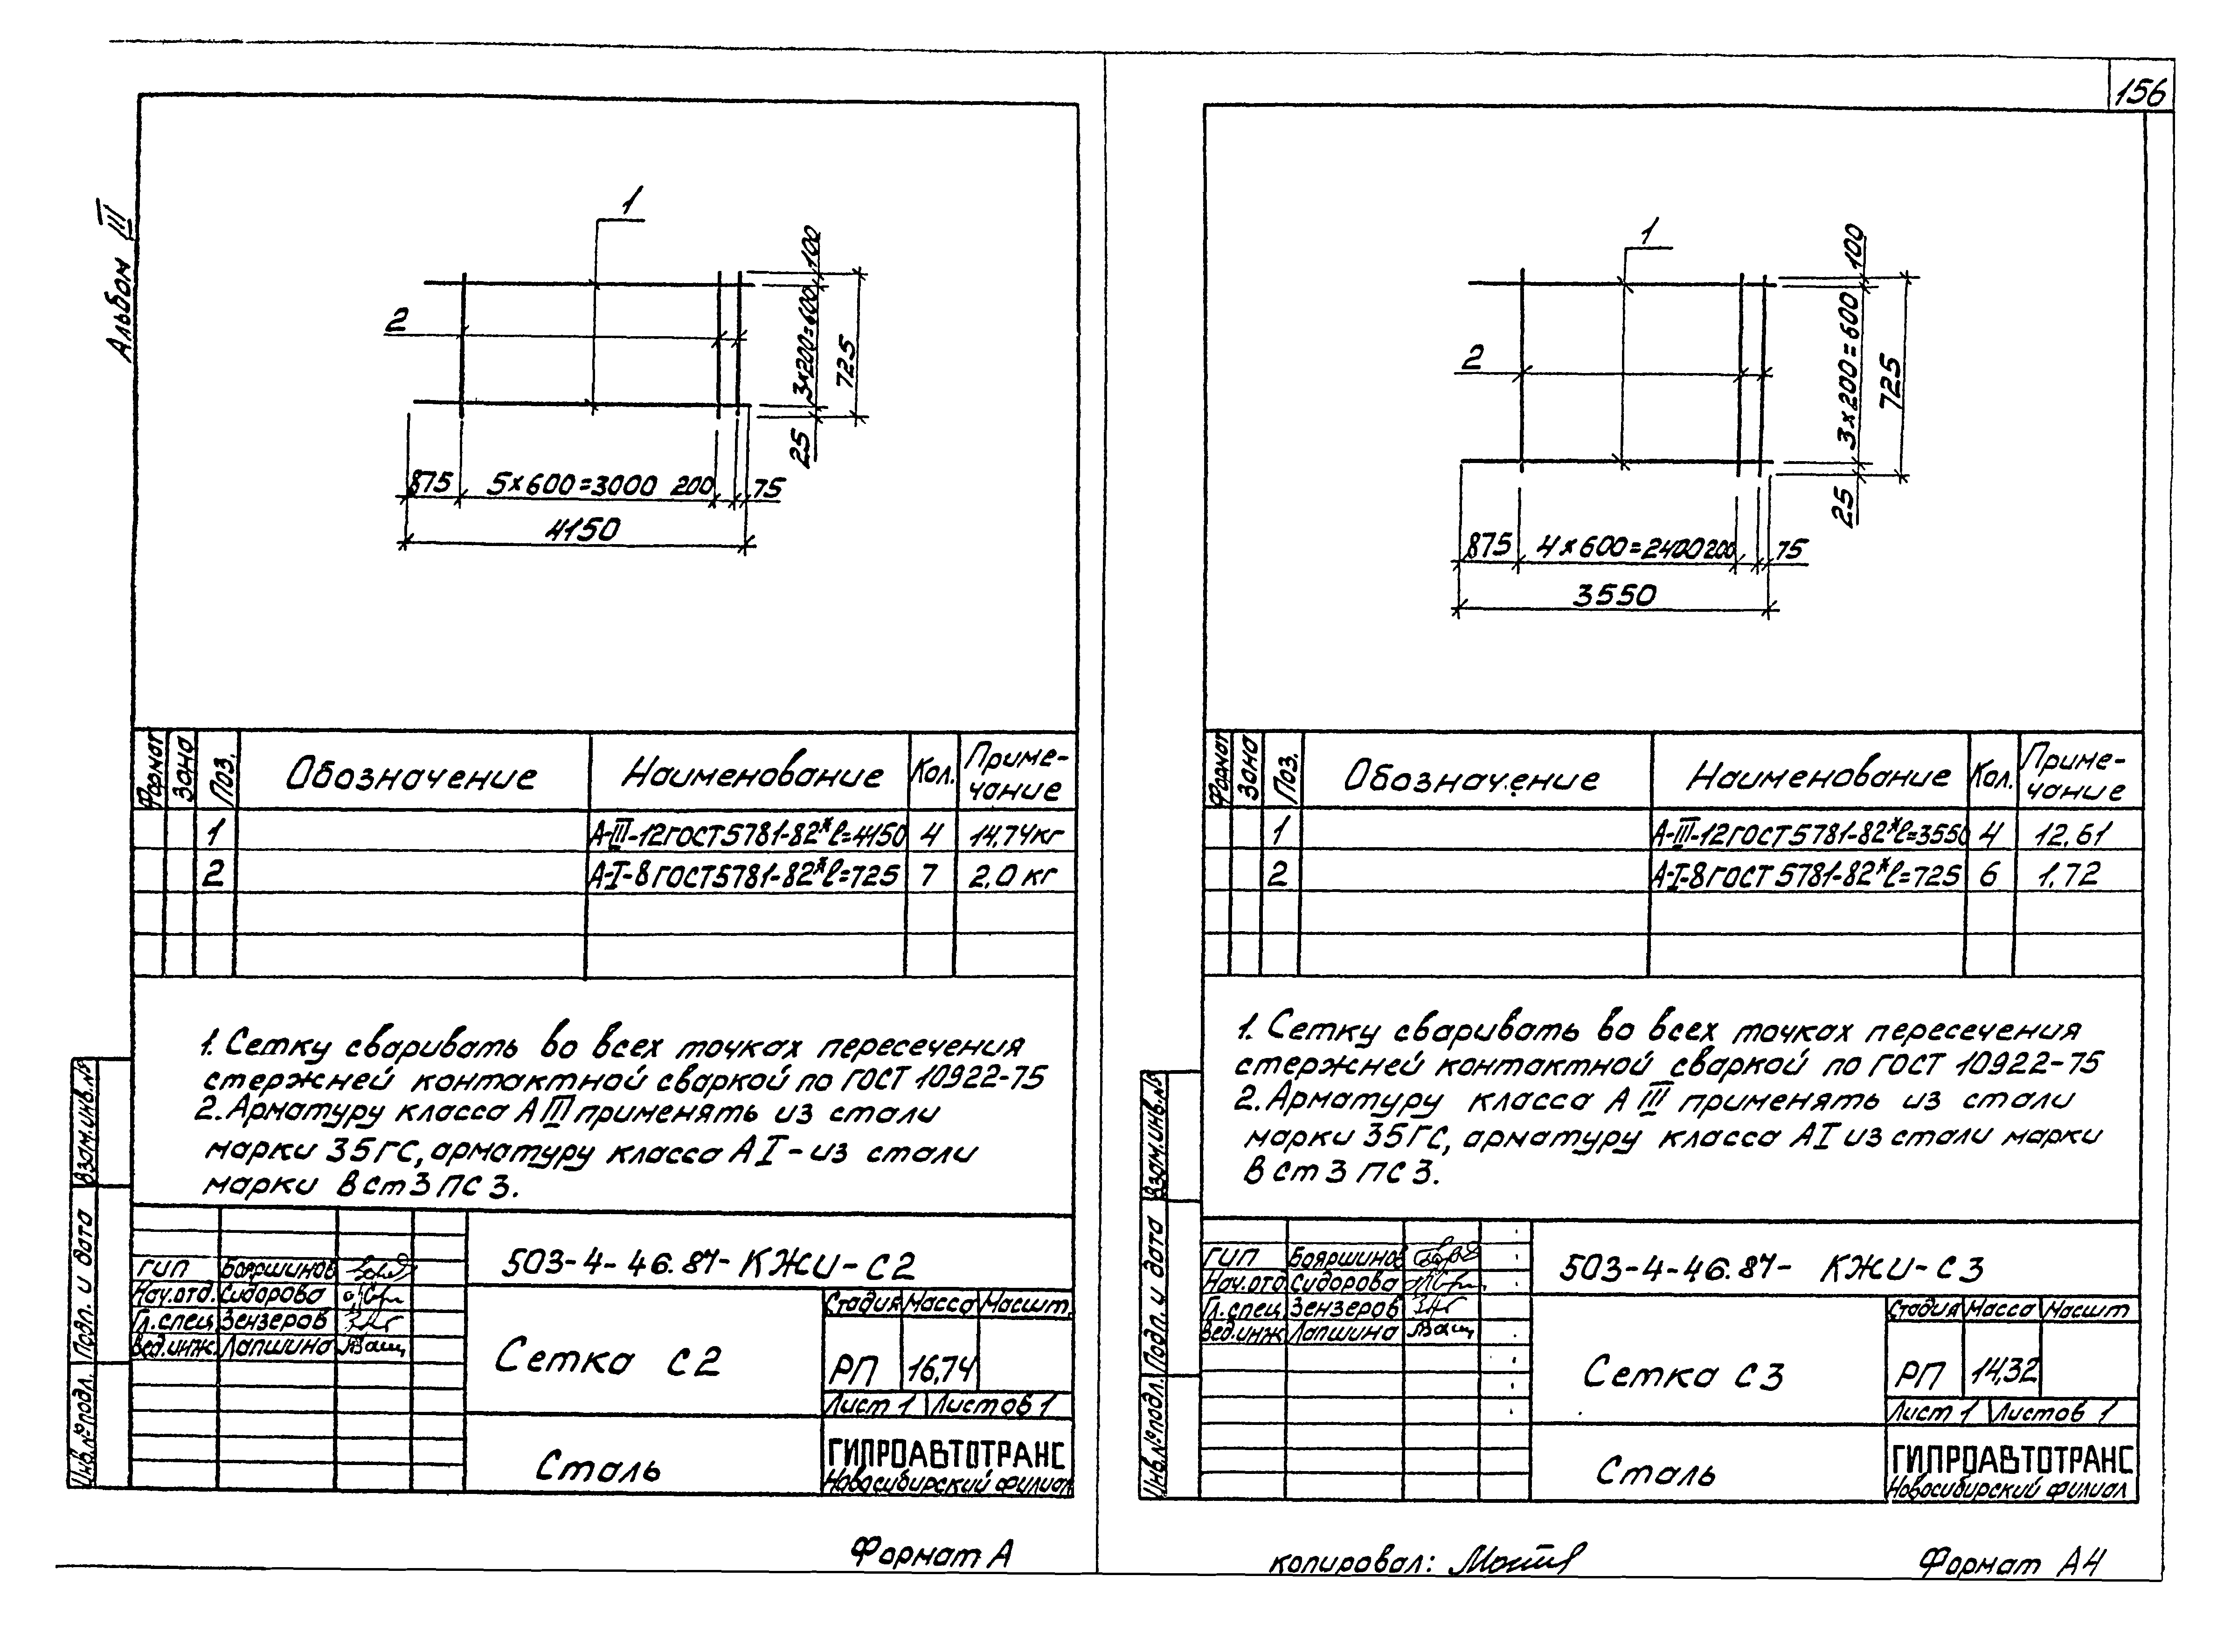 156
Альбом III
1
2
100
3×200=600
725
25
875 5×600=3000 200 75
4150
Формат Зона Поз. Обозначение Наименование Кол. Приме-
чание
1 А-III-12 ГОСТ 5781-82* ℓ=4150 4 14,74 кг
2 А-I-8 ГОСТ 5781-82* ℓ=725 7 2,0 кг
1. Сетку сваривать во всех точках пересечения
стержней контактной сваркой по ГОСТ 10922-75
2. Арматуру класса А III применять из стали
марки 35ГС, арматуру класса А I - из стали
марки В ст 3 ПС 3.
Взам.инв.№
Подп. и дата
Инв.№подл.
503-4-46.87-КЖИ-С2
ГИП Бояршинов
Нач.отд. Сидорова
Гл.спец. Зензеров
Вед.инж. Лапшина
Сетка С2
Стадия Масса Масшт.
РП 16,74
Лист 1 Листов 1
Сталь
ГИПРОАВТОТРАНС
Новосибирский филиал
Формат А
1
2
100
3×200=600
725
25
875 4×600=2400 200 75
3550
Формат Зона Поз. Обозначение Наименование Кол. Приме-
чание
1 А-III-12 ГОСТ 5781-82* ℓ=3550 4 12,61
2 А-I-8 ГОСТ 5781-82* ℓ=725 6 1,72
1. Сетку сваривать во всех точках пересечения
стержней контактной сваркой по ГОСТ 10922-75
2. Арматуру класса А III применять из стали
марки 35ГС, арматуру класса А I из стали марки
В ст 3 ПС 3.
Взам.инв.№
Подп. и дата
Инв.№подл.
503-4-46.87- КЖИ-С3
ГИП Бояршинов
Нач.отд Сидорова
Гл.спец Зензеров
Вед.инж Лапшина
Сетка С3
Стадия Масса Масшт
РП 14,32
Лист 1 Листов 1
Сталь
ГИПРОАВТОТРАНС
Новосибирский филиал
копировал:
Формат А4